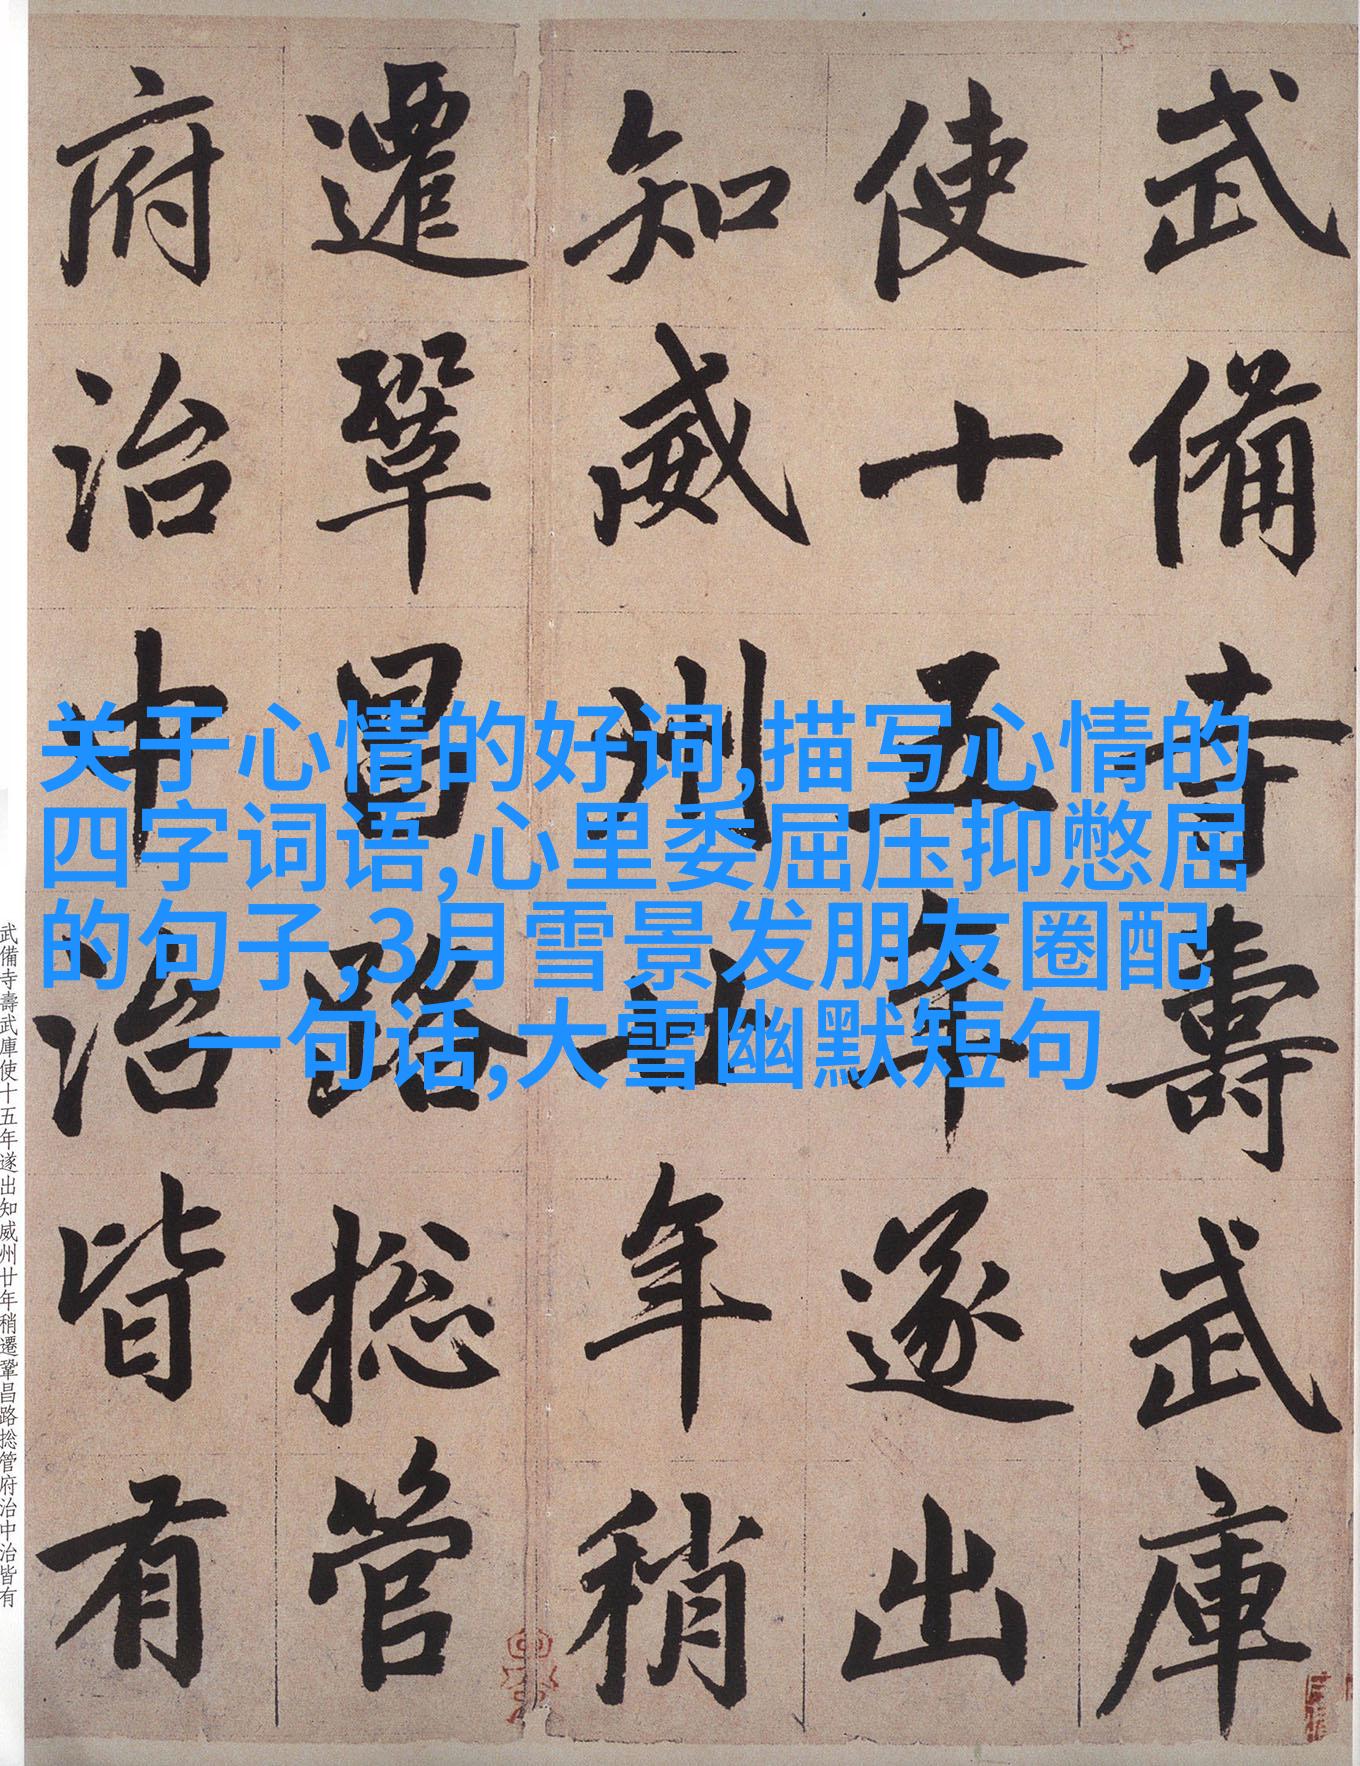 武備寺壽武庫
使十五年遂出
知威州廿年稍
遷鞏昌路捴管
府治中治皆有
关于心情的好词,描写心情的
四字词语,心里委屈压抑憋屈
的句子,3月雪景发朋友圈配
一句话,大雪幽默短句
武備寺壽武庫使十五年遂出知威州廿年稍遷鞏昌路捴管府治中治皆有